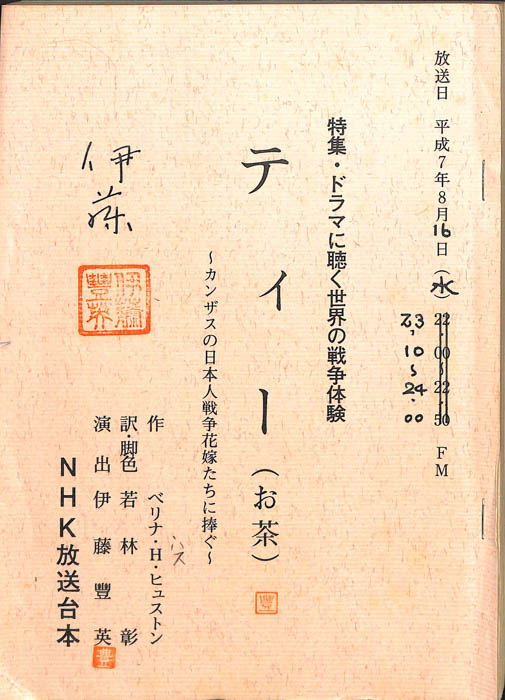 放送日 平成7年8月16日(水)22・00~22・50 FM
23.10~24.00
特集・ドラマに聴く世界の戦争体験
ティー(お茶)
豐
~カンザスの日本人戦争花嫁たちに捧ぐ~
作 ベリナ・H・ヒュストン
ハス
訳・脚色 若林 彰
演出 伊藤豐英
豊
NHK放送台本
伊藤
伊藤豐英